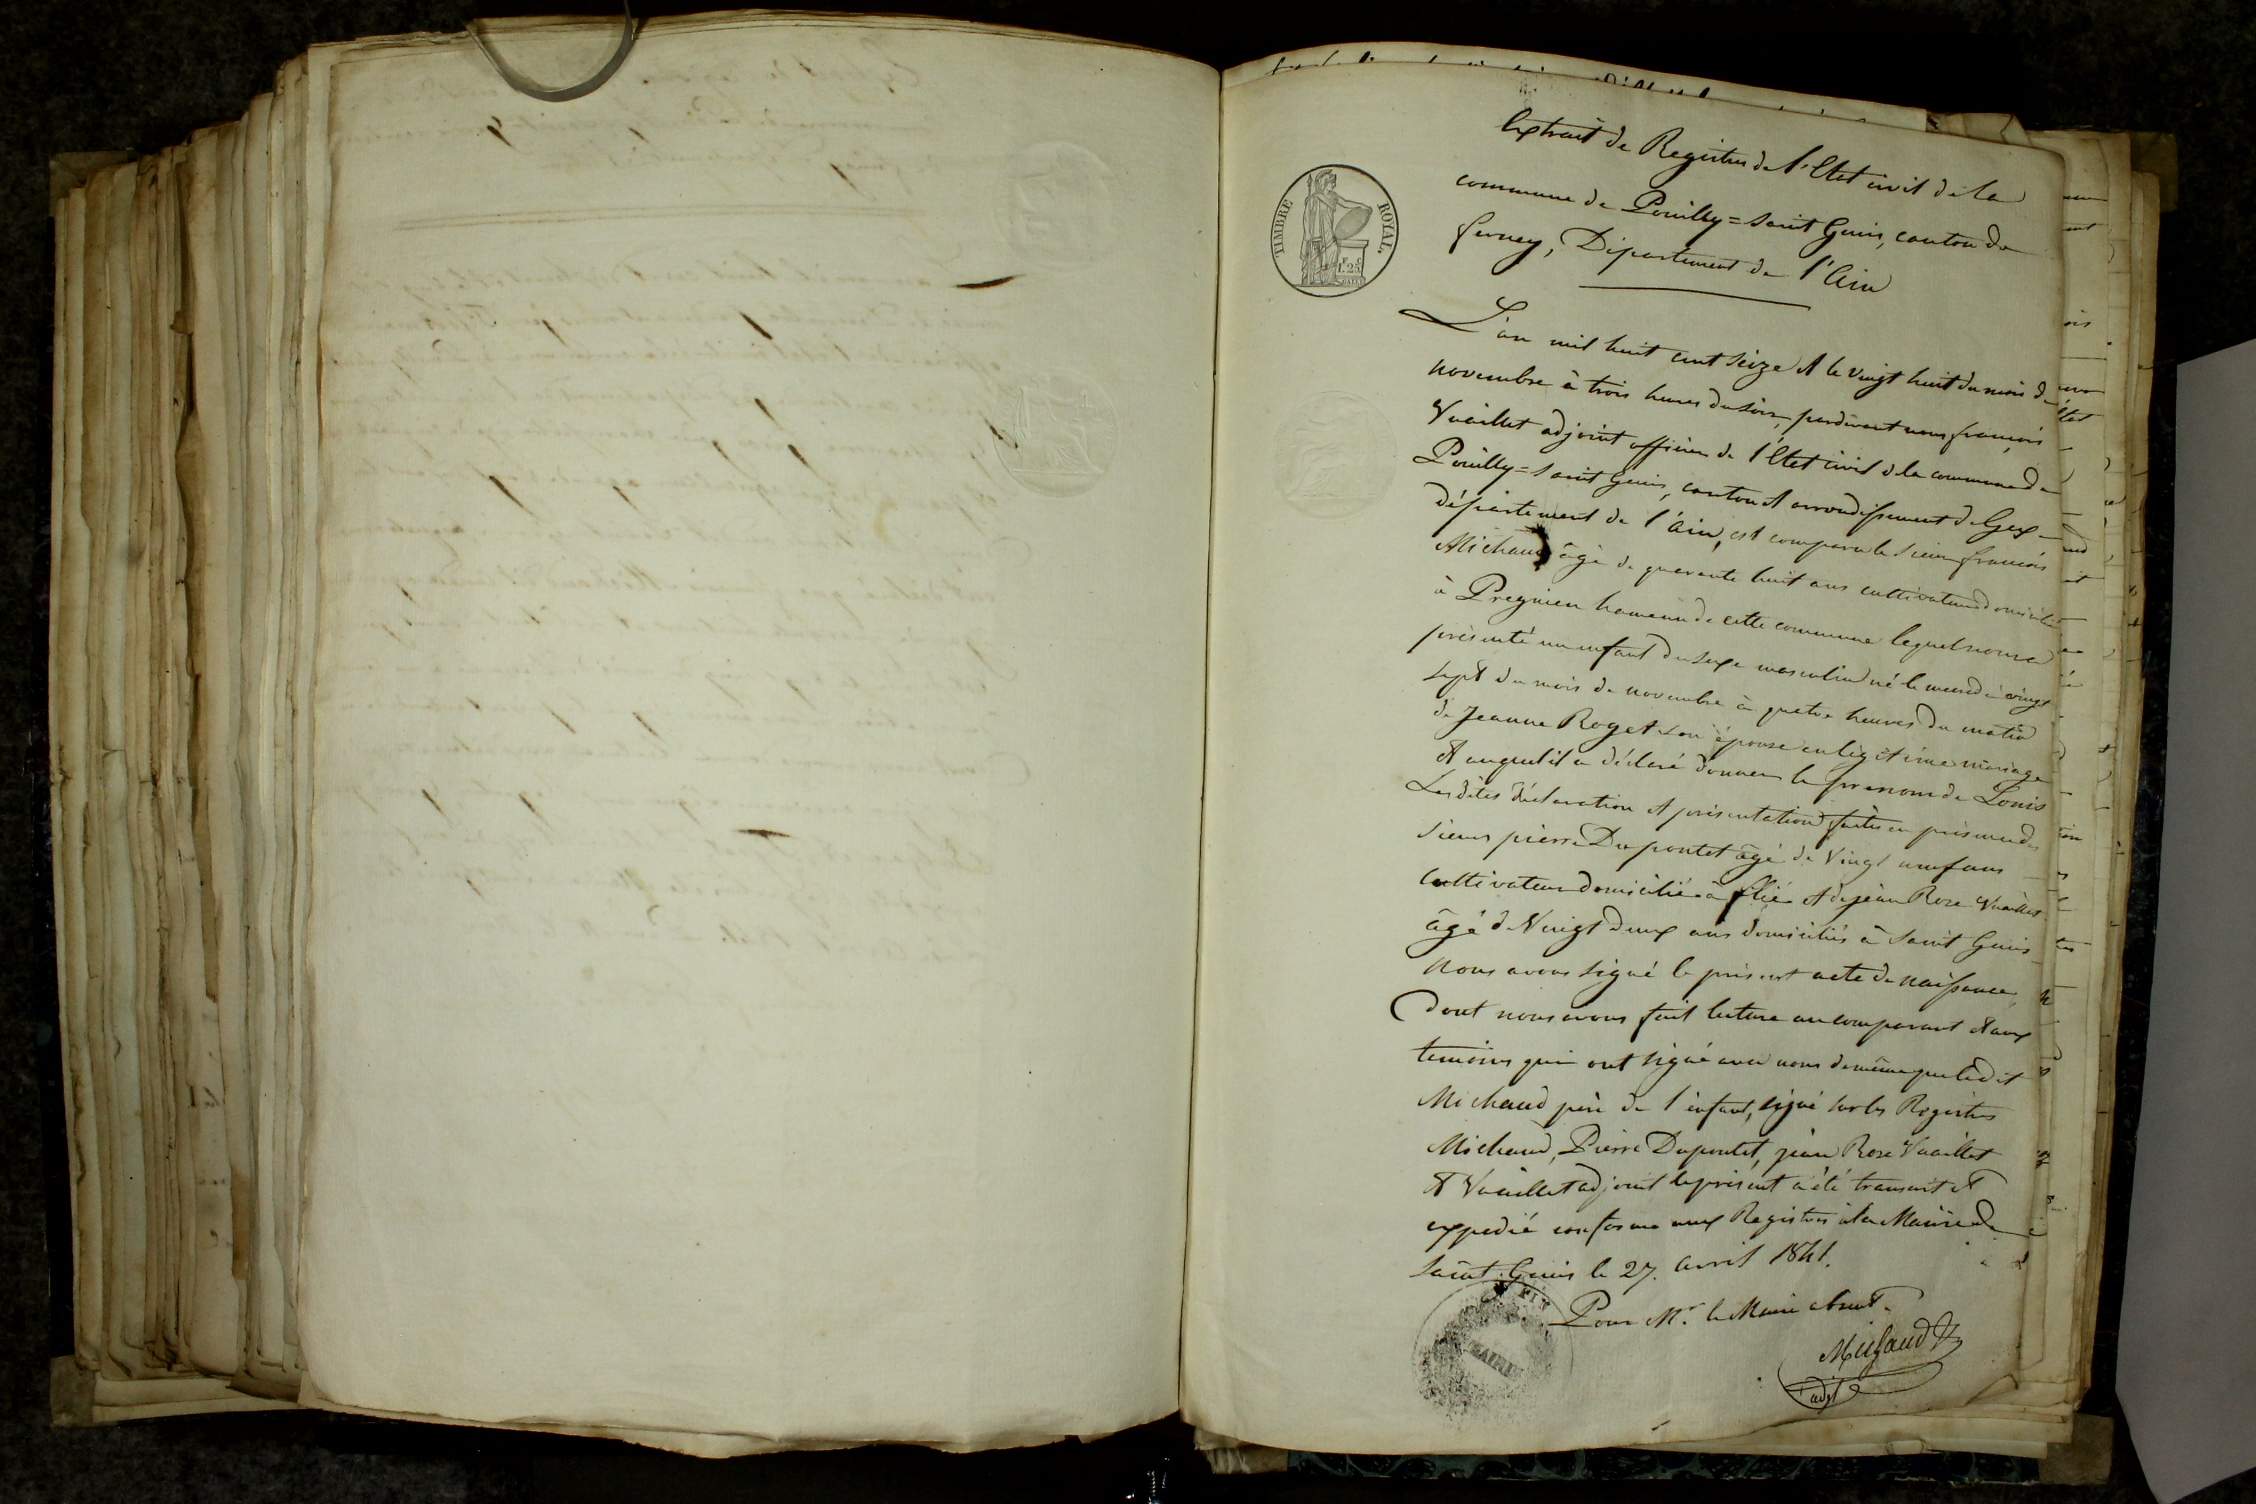 Extrait de Registres de l'Etat civil de la
commune de Pouilly=Saint Genis, canton de
ferney, Département de l'Ain
TIMBRE ROYAL.
1F. 25C
L'an mil huit cent seize et le vingt huit du mois de
novembre à trois heures du soir, pardevant nous françois
Vuaillet adjoint officier de l'Etat civil de la commune de
Pouilly=Saint Genis, canton et arrondissement de Gex
département de l'ain, est comparu le sieur françois
Michaud âgé de quarante huit ans cultivateur domicilié
à Pregnien hameau de cette commune lequel nous a
présenté un enfant du sexe masculin né le mercredi vingt
sept du mois de novembre à quatre heures du matin
de Jeanne Roget son épouse en légitime mariage
et auquel il a déclaré donner le prenom de Louis
Les dites déclaration et présentation faites en présence des
sieurs pierre Dupontet âgé de Vingt neuf ans
cultivateur domicilié à flié et de jean Roze Vuaillet
âgé de Vingt deux ans domiciliés à Saint Genis
Nous avons signé le présent acte de naissance,
Dont nous avons fait lecture au comparant et aux
temoins qui ont signé avec nous de même que ledit
Michaud père de l'enfant, signé sur les Registres
Michaud, Pierre Dupontet, jean Roze Vuaillet
et Vuaillet adjoint le présent a été transcrit et
expedié conforme aux Registres à la Mairie de
Saint Genis le 27. avril 1841.
Pour Mr. le Maire absent.
Michaud
adjt
MAIRIE